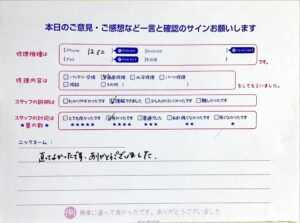 本日のご意見・ご感想など一言と確認のサインお願いします
修理機種は
iPhone 12 (Android
iPad その他
です。
修理内容は
バッテリー交換 画面修理 水没修理 パーツ修理
相談 その他
をしてもらいました。
スタッフの説明は
わかりやすかったです 理解できました 少しわかりにくかったです 難しかったです
スタッフの対応は
とても良かったです 良かったです 普通でした あまり良くなかったです 良くなかったです
★星の数★
★★★★★ ★★★★ ★★★ ★★ ★
ニックネーム:
直ってよかったです。ありがとうございました。
無事に直って良かったです。ありがとうございました